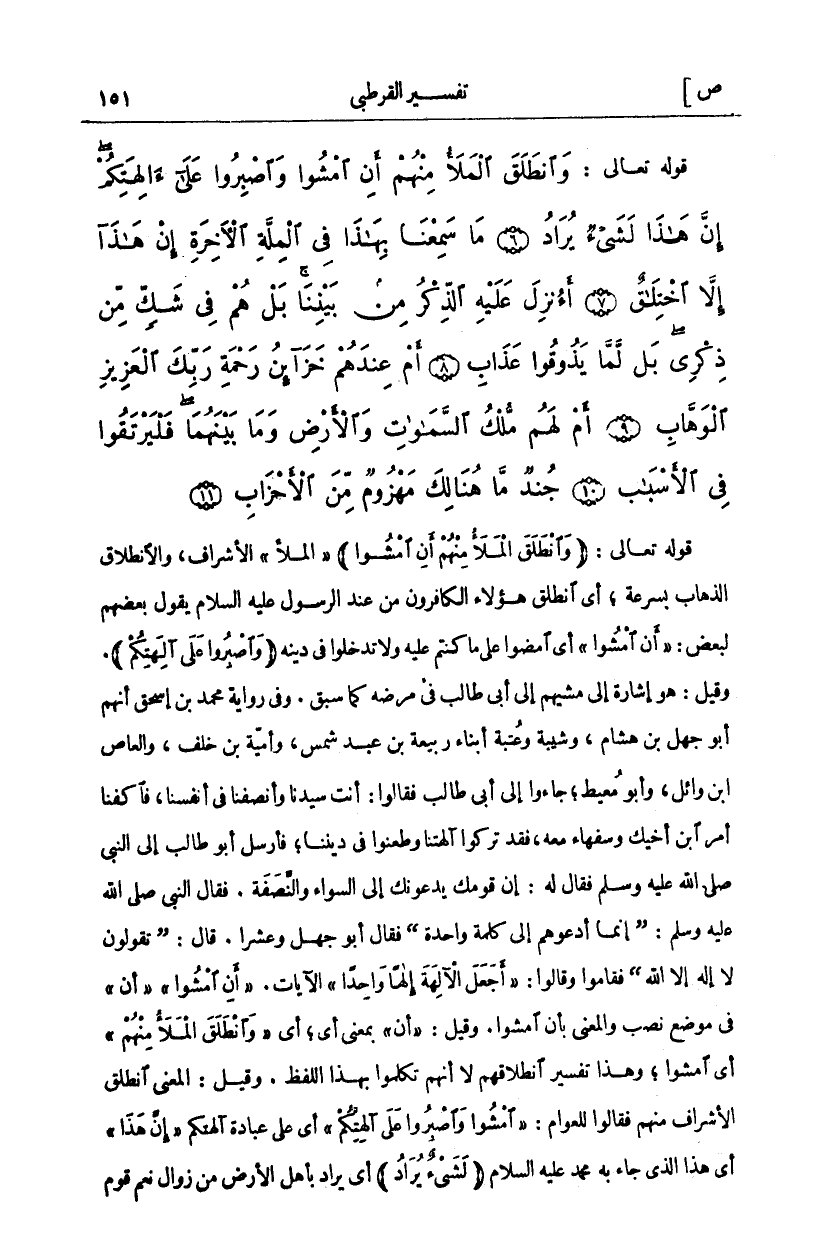 ص ] تفسير القرطبي ١٥١
قوله تعالى : وَٱنطَلَقَ ٱلْمَلَأُ مِنْهُمْ أَنِ ٱمْشُوا وَٱصْبِرُوا عَلَىٰٓ ءَالِهَتِكُمْ ۖ
إِنَّ هَـٰذَا لَشَىْءٌ يُرَادُ ﴿٦﴾ مَا سَمِعْنَا بِهَـٰذَا فِى ٱلْمِلَّةِ ٱلْآخِرَةِ إِنْ هَـٰذَآ
إِلَّا ٱخْتِلَـٰقٌ ﴿٧﴾ أَءُنزِلَ عَلَيْهِ ٱلذِّكْرُ مِنۢ بَيْنِنَا ۚ بَلْ هُمْ فِى شَكٍّ مِّن
ذِكْرِى ۖ بَل لَّمَّا يَذُوقُوا عَذَابِ ﴿٨﴾ أَمْ عِندَهُمْ خَزَآئِنُ رَحْمَةِ رَبِّكَ ٱلْعَزِيزِ
ٱلْوَهَّابِ ﴿٩﴾ أَمْ لَهُم مُّلْكُ ٱلسَّمَـٰوَٰتِ وَٱلْأَرْضِ وَمَا بَيْنَهُمَا ۖ فَلْيَرْتَقُوا
فِى ٱلْأَسْبَـٰبِ ﴿١٠﴾ جُندٌ مَّا هُنَالِكَ مَهْزُومٌ مِّنَ ٱلْأَحْزَابِ ﴿١١﴾
قوله تعالى : ( وَٱنْطَلَقَ الْمَلَأُ مِنْهُمْ أَنِ ٱمْشُوا ) « الملأ » الأشراف، والٱنطلاق
الذهاب بسرعة ؛ أى ٱنطلق هؤلاء الكافرون من عند الرسول عليه السلام يقول بعضهم
لبعض : « أَن ٱمْشُوا » أى ٱمضوا على ما كنتم عليه ولا تدخلوا فى دينه ( وَٱصْبِرُوا عَلَى آلِهَتِكُمْ ) .
وقيل : هو إشارة إلى مشيهم إلى أبى طالب فى مرضه كما سبق . وفى رواية محمد بن إسحق أنهم
أبو جهل بن هشام ، وشيبة وعُتبة أبناء ربيعة بن عبد شمس، وأميّة بن خلف ، والعاص
ابن وائل، وأبو مُعيط ؛ جاءوا إلى أبى طالب فقالوا : أنت سيدنا وأنصفنا فى أنفسنا، فٱكفنا
أمر ٱبن أخيك وسفهاء معه، فقد تركوا آلهتنا وطعنوا فى ديننا؛ فأرسل أبو طالب إلى النبى
صلى الله عليه وسلم فقال له : إن قومك يدعونك إلى السواء والنَّصَفَة . فقال النبى صلى الله
عليه وسلم : ” إنما أدعوهم إلى كلمة واحدة “ فقال أبو جهل وعشرا . قال : ” تقولون
لا إله إلا الله “ فقاموا وقالوا : « أَجَعَلَ الْآلِهَةَ إِلهًا وَاحِدًا » الآيات . « أَنِ ٱمْشُوا » « أن »
فى موضع نصب والمعنى بأن ٱمشوا. وقيل : «أن» بمعنى أى ؛ أى « وَٱنْطَلَقَ الْمَلَأُ مِنْهُمْ »
أى ٱمشوا ؛ وهذا تفسير ٱنطلاقهم لا أنهم تكلموا بهذا اللفظ . وقيل : المعنى ٱنطلق
الأشراف منهم فقالوا للعوام : « ٱمْشُوا وَٱصْبِرُوا عَلَى آلِهَتِكُمْ » أى على عبادة آلهتكم « إِنَّ هَذَا »
أى هذا الذى جاء به محمد عليه السلام ( لَشَىْءٌ يُرَادُ ) أى يراد بأهل الأرض من زوال نعم قوم